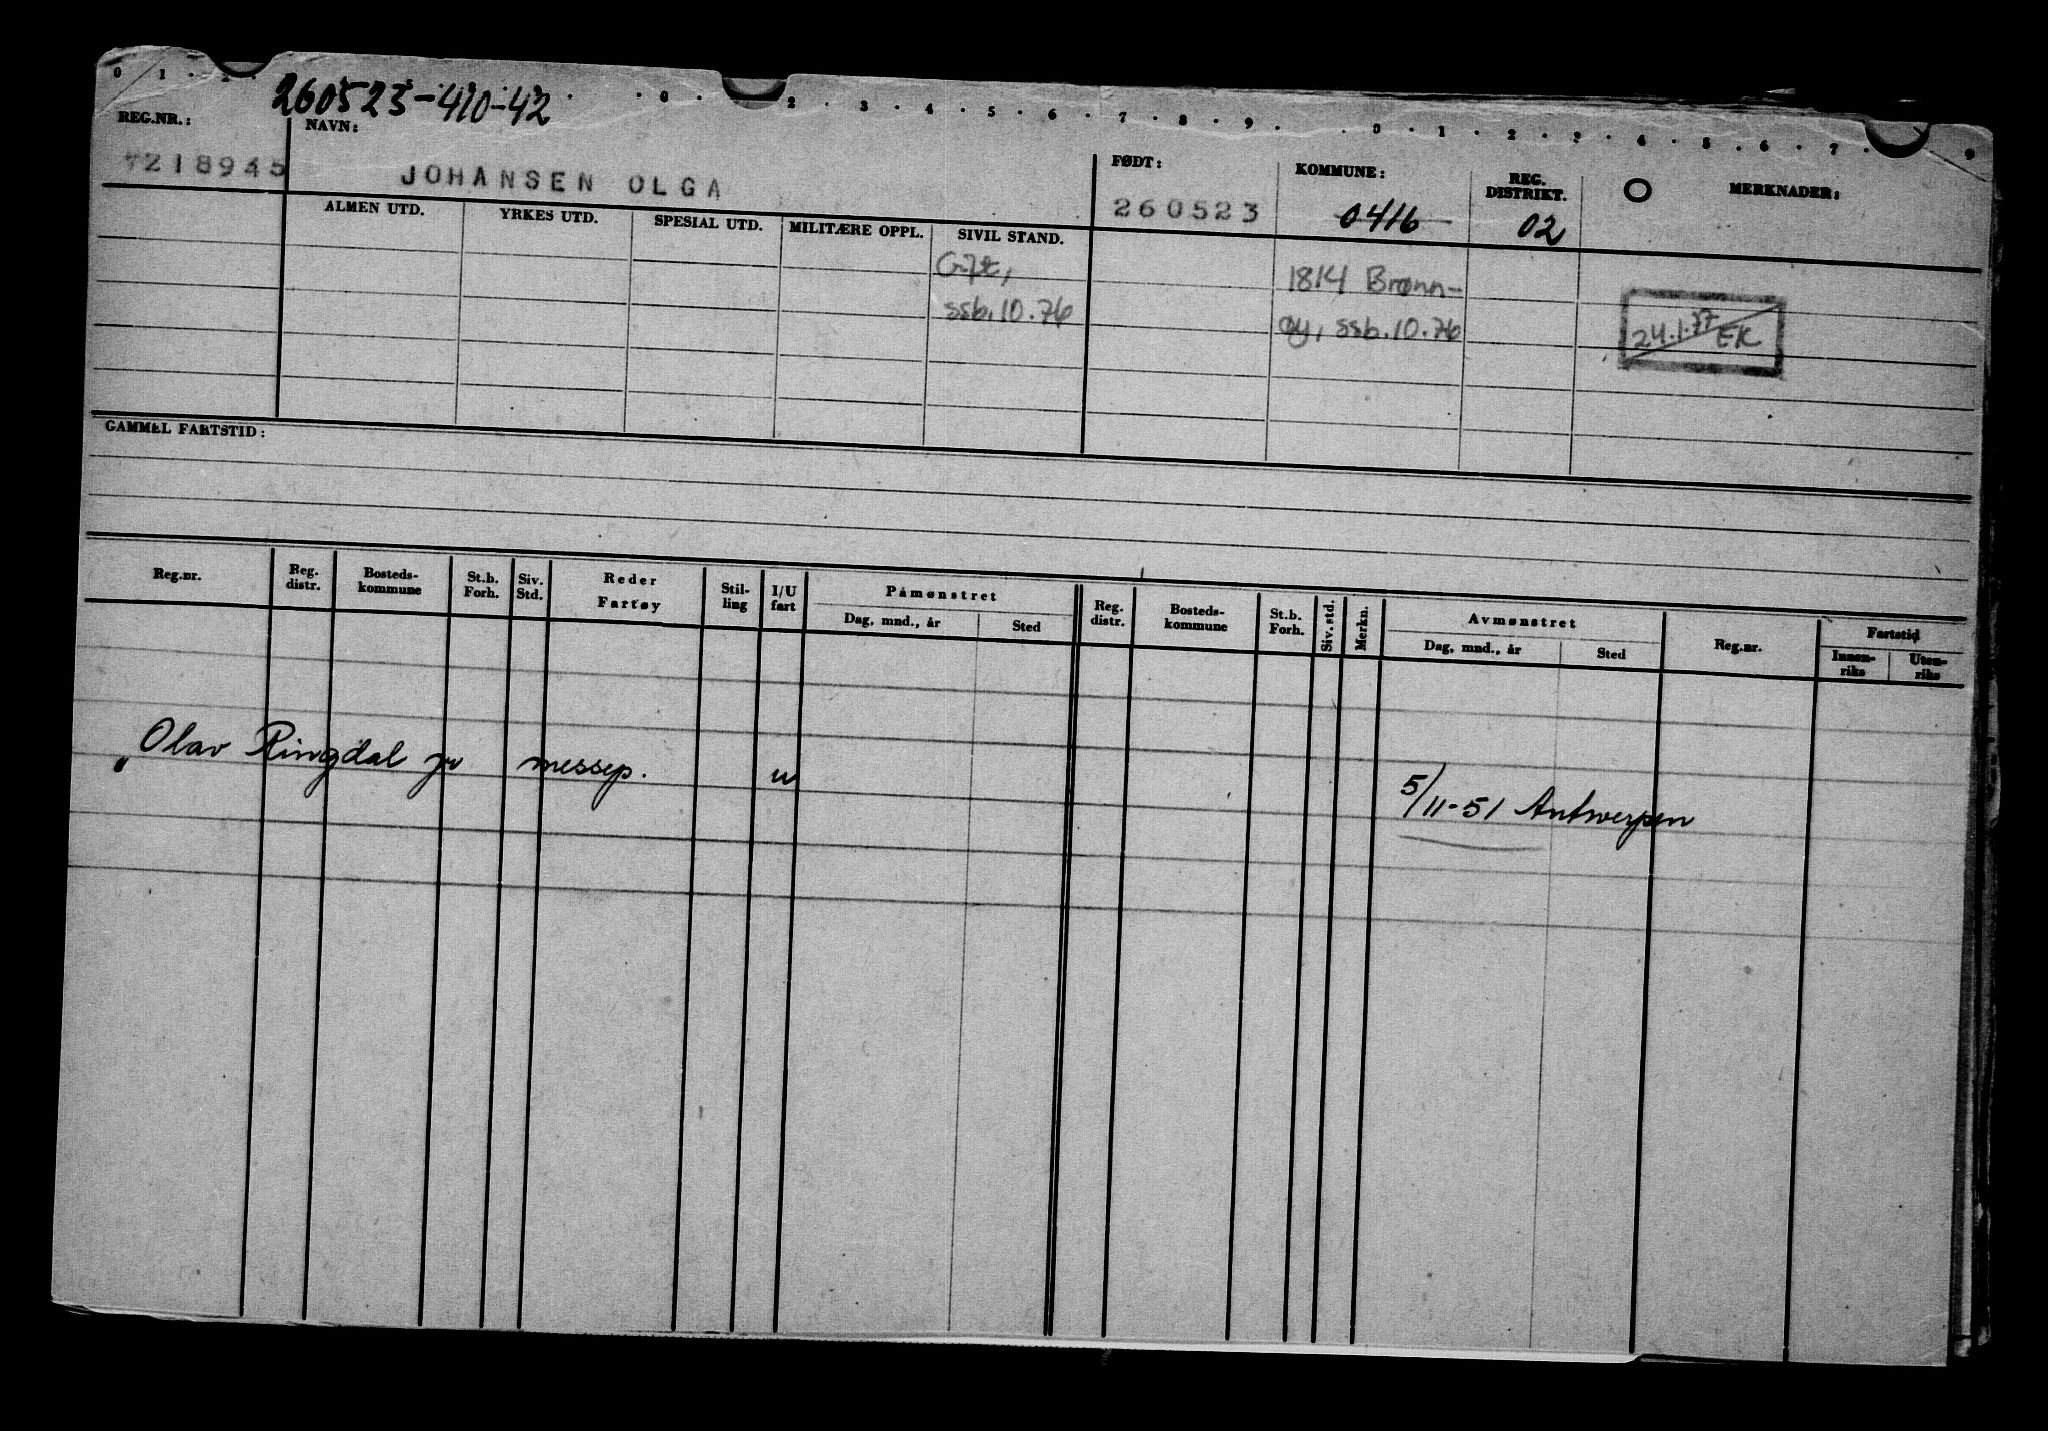 260523-410-42
REG.NR.:
NAVN:
7218945
JOHANSEN OLGA
FØDT:
260523
KOMMUNE:
0416
REG. DISTRIKT.
02
MERKNADER:
ALMEN UTD.
YRKES UTD.
SPESIAL UTD.
MILITÆRE OPPL.
SIVIL STAND.
Gift,
ssb.10.76
1814 Brønn-
øy, ssb.10.76
24.1.77 EK
GAMMEL FARTSTID:
Reg.nr.
Reg. distr.
Bosteds- kommune
St.b. Forh.
Siv. Std.
Reder
Fartøy
Stil- ling
I/U fart
Påmønstret
Dag, mnd., år
Sted
Reg. distr.
Bosteds- kommune
St.b. Forh.
Siv. std.
Merkn.
Avmønstret
Dag, mnd., år
Sted
Reg.nr.
Fartstid
Innen- riks
Uten- riks
Olav Ringdal jr messep. u 5/11-51 Antwerpen